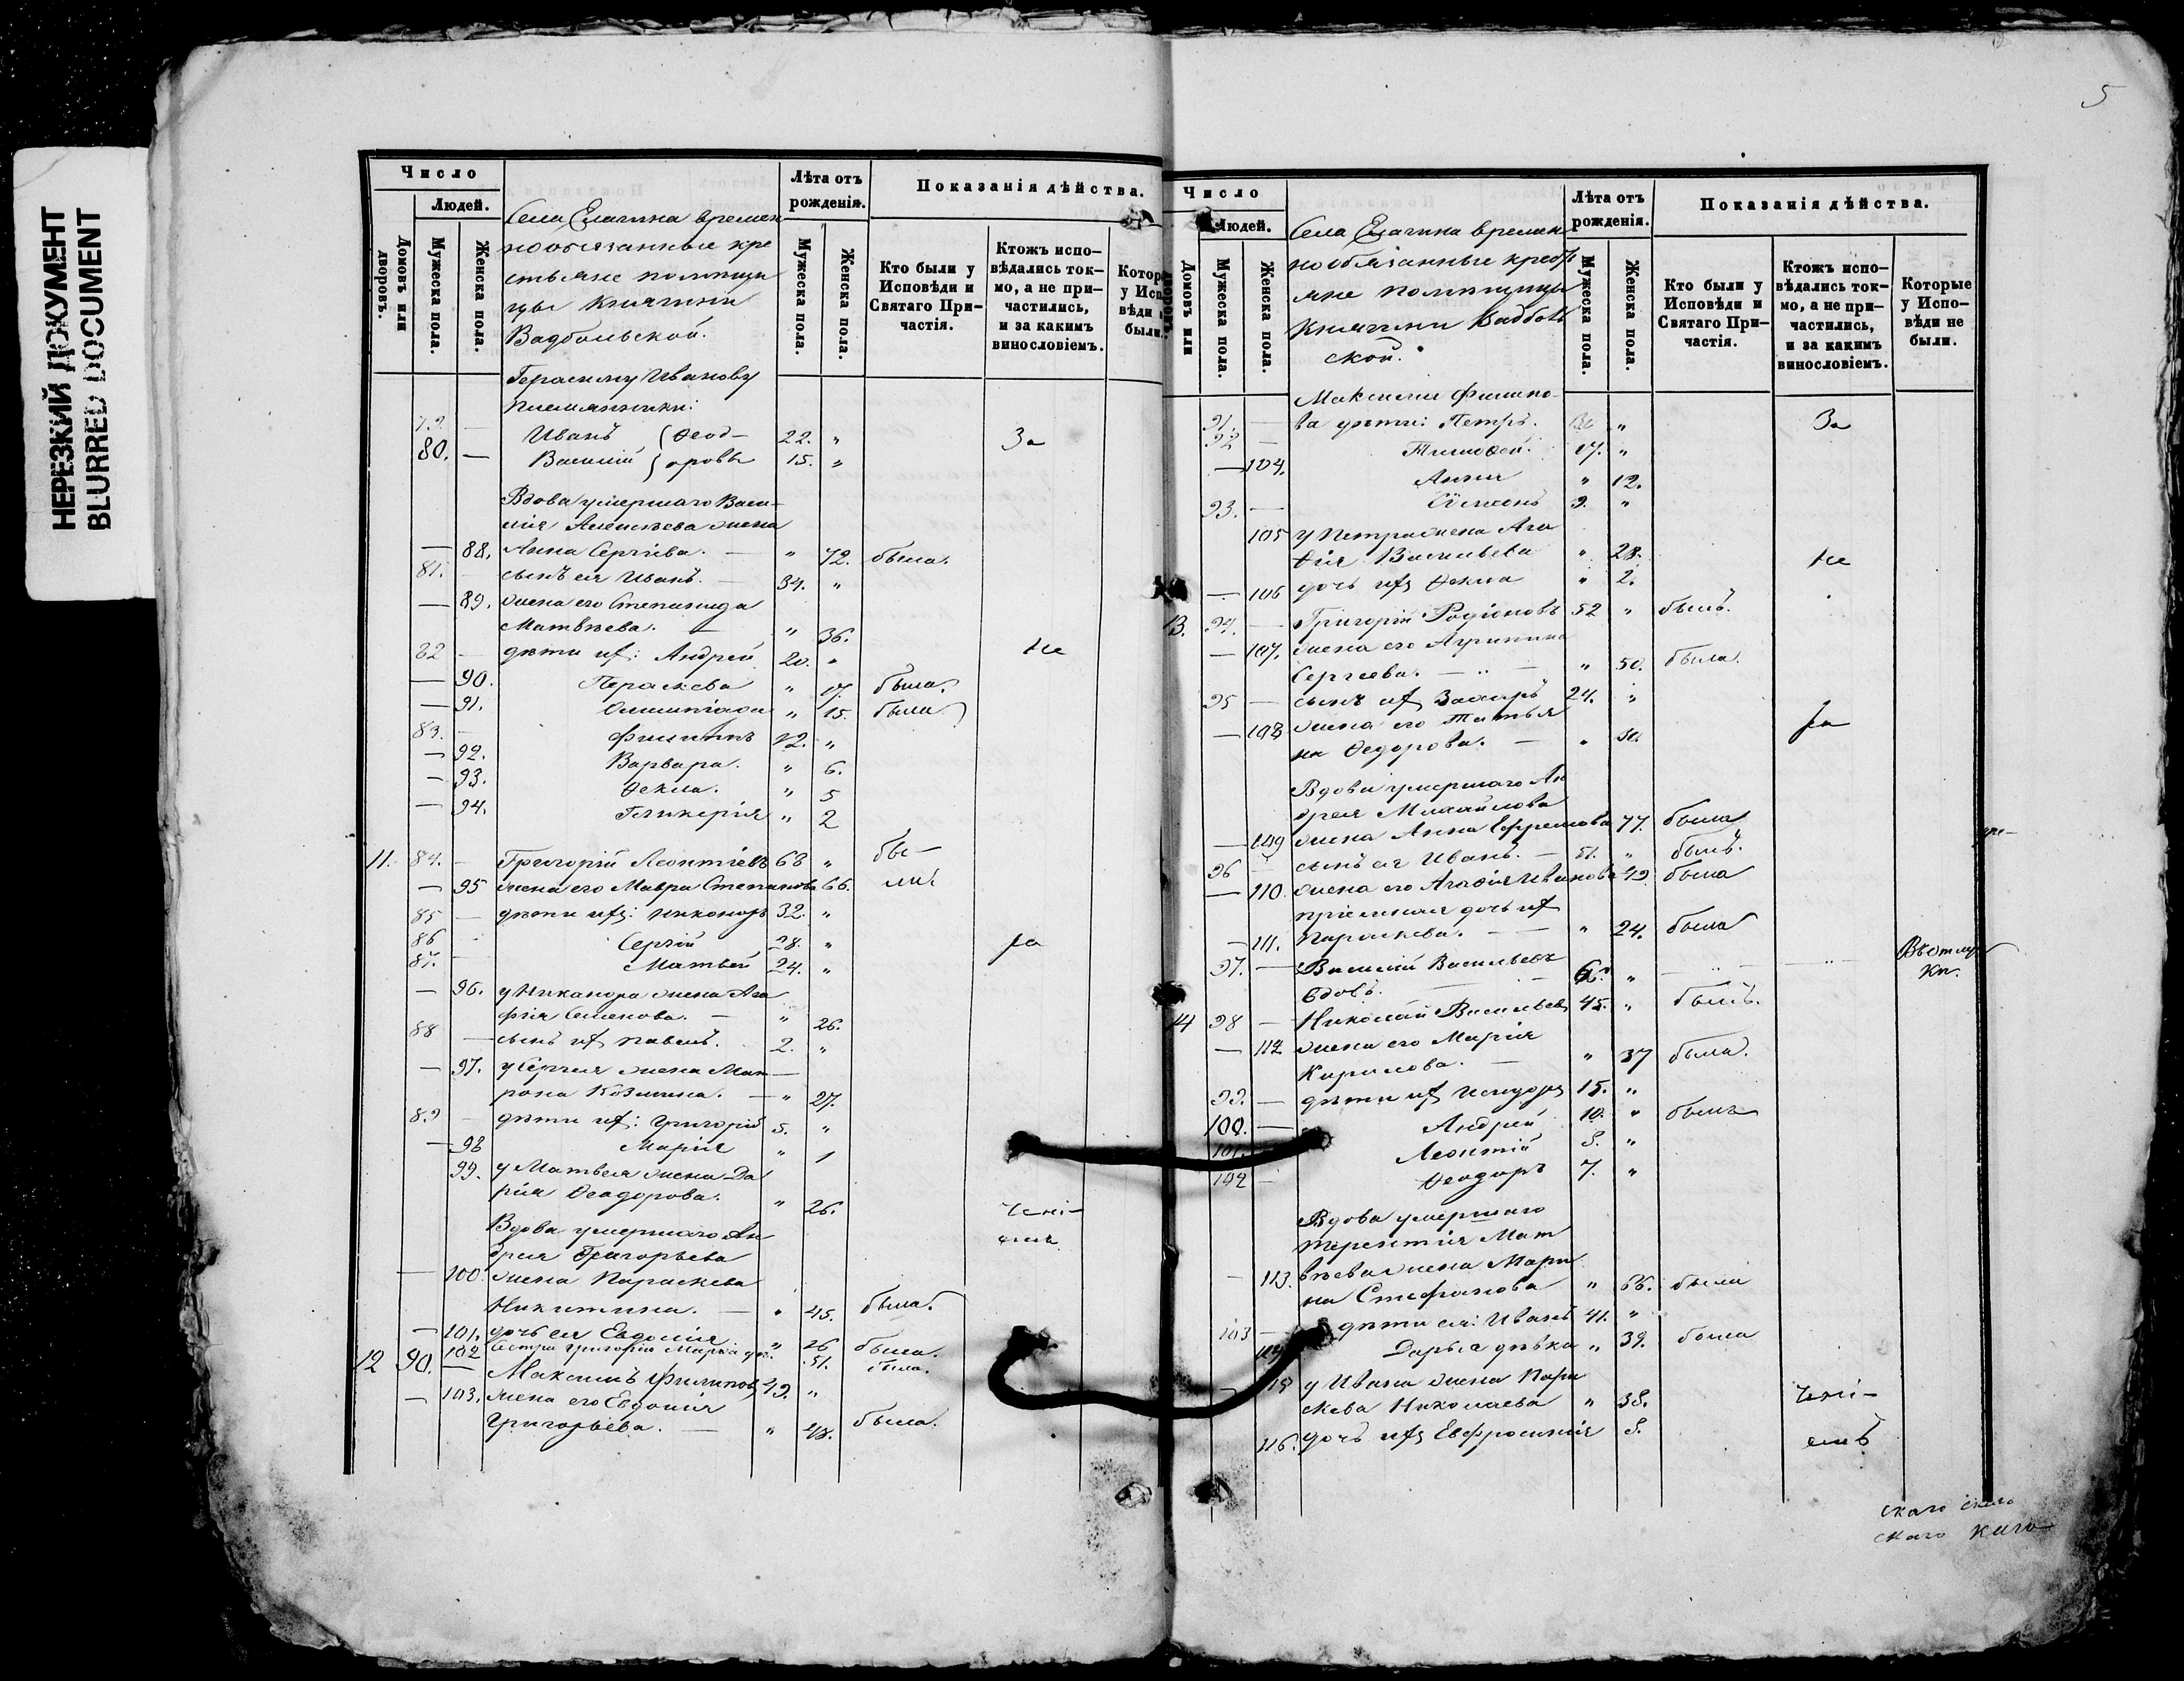 НЕРЕЗКИЙ ДОКУМЕНТ
BLURRED DOCUMENT
Число
Людей.
Домовъ или дворовъ.
Мужеска пола.
Женска пола.
Села Елагина времен
нообязанные кре
стьяне помѣщи
цы Княгини
Вадбольской.
Лѣта отъ рожденія.
Мужеска пола.
Женска пола.
Показанія дѣйства.
Кто были у Исповѣди и Святаго Причастія.
Ктожъ исповѣдались токмо, а не причастились, и за какимъ винословіемъ.
Которые у Исповѣди не были.
Герасиму Иванову
племянники:
79. — Иванъ { Ѳеод- 22. „ За
80. — Василій } оровы 15. „
Вдова умершаго Васи-
лія Алексѣева жена
— 88. Анна Сергіева. — „ 72. была.
81. — сынъ ея Иванъ. — 34. „
— 89. жена его Степанида
Матвѣева. — „ 36.
82 — дѣти ихъ: Андрей 20. „ не
— 90. Параскева „ 17. была.
— 91. Олимпіада „ 15. была
83. — Филиппъ 12. „
— 92. Варвара. „ 6.
— 93. Ѳекла. „ 5
— 94. Гликерія „ 2
11. 84. — Григорій Леонтіевъ 68 „ бы-
— 95 жена его Мавра Степанова 66. ли.
85 — дѣти ихъ: Никаноръ 32. „
86 - Сергій 28. „ ра
87. — Матвей 24. „
— 96. у Никанора жена Ага
фія Семенова. — „ 26.
88 — сынъ ихъ Павелъ. 2. „
— 97. у Сергея жена Мат-
рона Козмина. — „ 27.
89 — дѣти ихъ: Григорій 5. „
— 98 Марія „ 1
99. у Матвея жена Да
рія Ѳеодорова. „ 26.
чені-
емъ
Вдова умершаго Ан
дрея Григорьева
— 100. жена Параскева
Никитина. — „ 45. была.
— 101. дочь ея Евдокія „ 16 была.
102 Сестра Григорія Марья дѣ. 51. была.
12 90. — Максимъ Филиповъ 49. „
— 103. жена его Евдокія
Григорьева. — „ 48. была.
5
Число
Людей.
Домовъ или дворовъ.
Мужеска пола.
Женска пола.
Села Елагина времен
нообязанные крест
яне помѣщицы
Княгини Вадболь
ской.
Лѣта отъ рожденія.
Мужеска пола.
Женска пола.
Показанія дѣйства.
Кто были у Исповѣди и Святаго Причастія.
Ктожъ исповѣдались токмо, а не причастились, и за какимъ винословіемъ.
Которые у Исповѣди не были.
Максима Филипо-
91. — ва дѣти: Петръ. „ За
92 — Тимоѳей. 17. „
— 104. Анна „ 12.
93. — Семенъ 9. „
105 у Петра жена Ага
ѳія Васильева „ 28. не
— 106 дочь ихъ Ѳекла „ 2.
13. 94. — Григорій Родіоновъ 52 „ былъ.
— 107. жена его Агрипина
Сергеева. — „ — „ 50. была.
95 — сынъ ихъ Захаръ 24. „
— 108 жена его Татья
на Ѳедорова. — „ ра
Вдова умершаго Ан
дрея Михайлова
— 109 жена Анна Ефремова 77. была
96 — сынъ ея Иванъ. — 51. „ былъ.
— 110. жена его Агафія Иванова 49. была
пріемная дочь ихъ
— 111. Параскева. — — „ 24. была
97. — Василій Васильевъ
вдовъ. — — „ — „ — — „ — Въ отлуч
кѣ.
14 98 — Николай Васильевъ 45. „ былъ.
— 112 жена его Марія
Кирилова. — „ 37 была.
99. — дѣти ихъ Исидоръ 15. „
100. — Андрей 10. „ былъ
101. — Леонтій 8. „
102 — Ѳеодоръ 7. „
Вдова умершаго
Терентія Мат
— 113. вѣева жена Мари
на Стефанова „ 66. была
103 — дѣти ея: Иванъ 41. „
114 Дарья дѣвка „ 39. была
— 115 у Ивана жена Пара
скева Николаева „ 38. чені-
116. дочь ихъ Евфросинія 8. емъ
скаго скаго
скаго каго